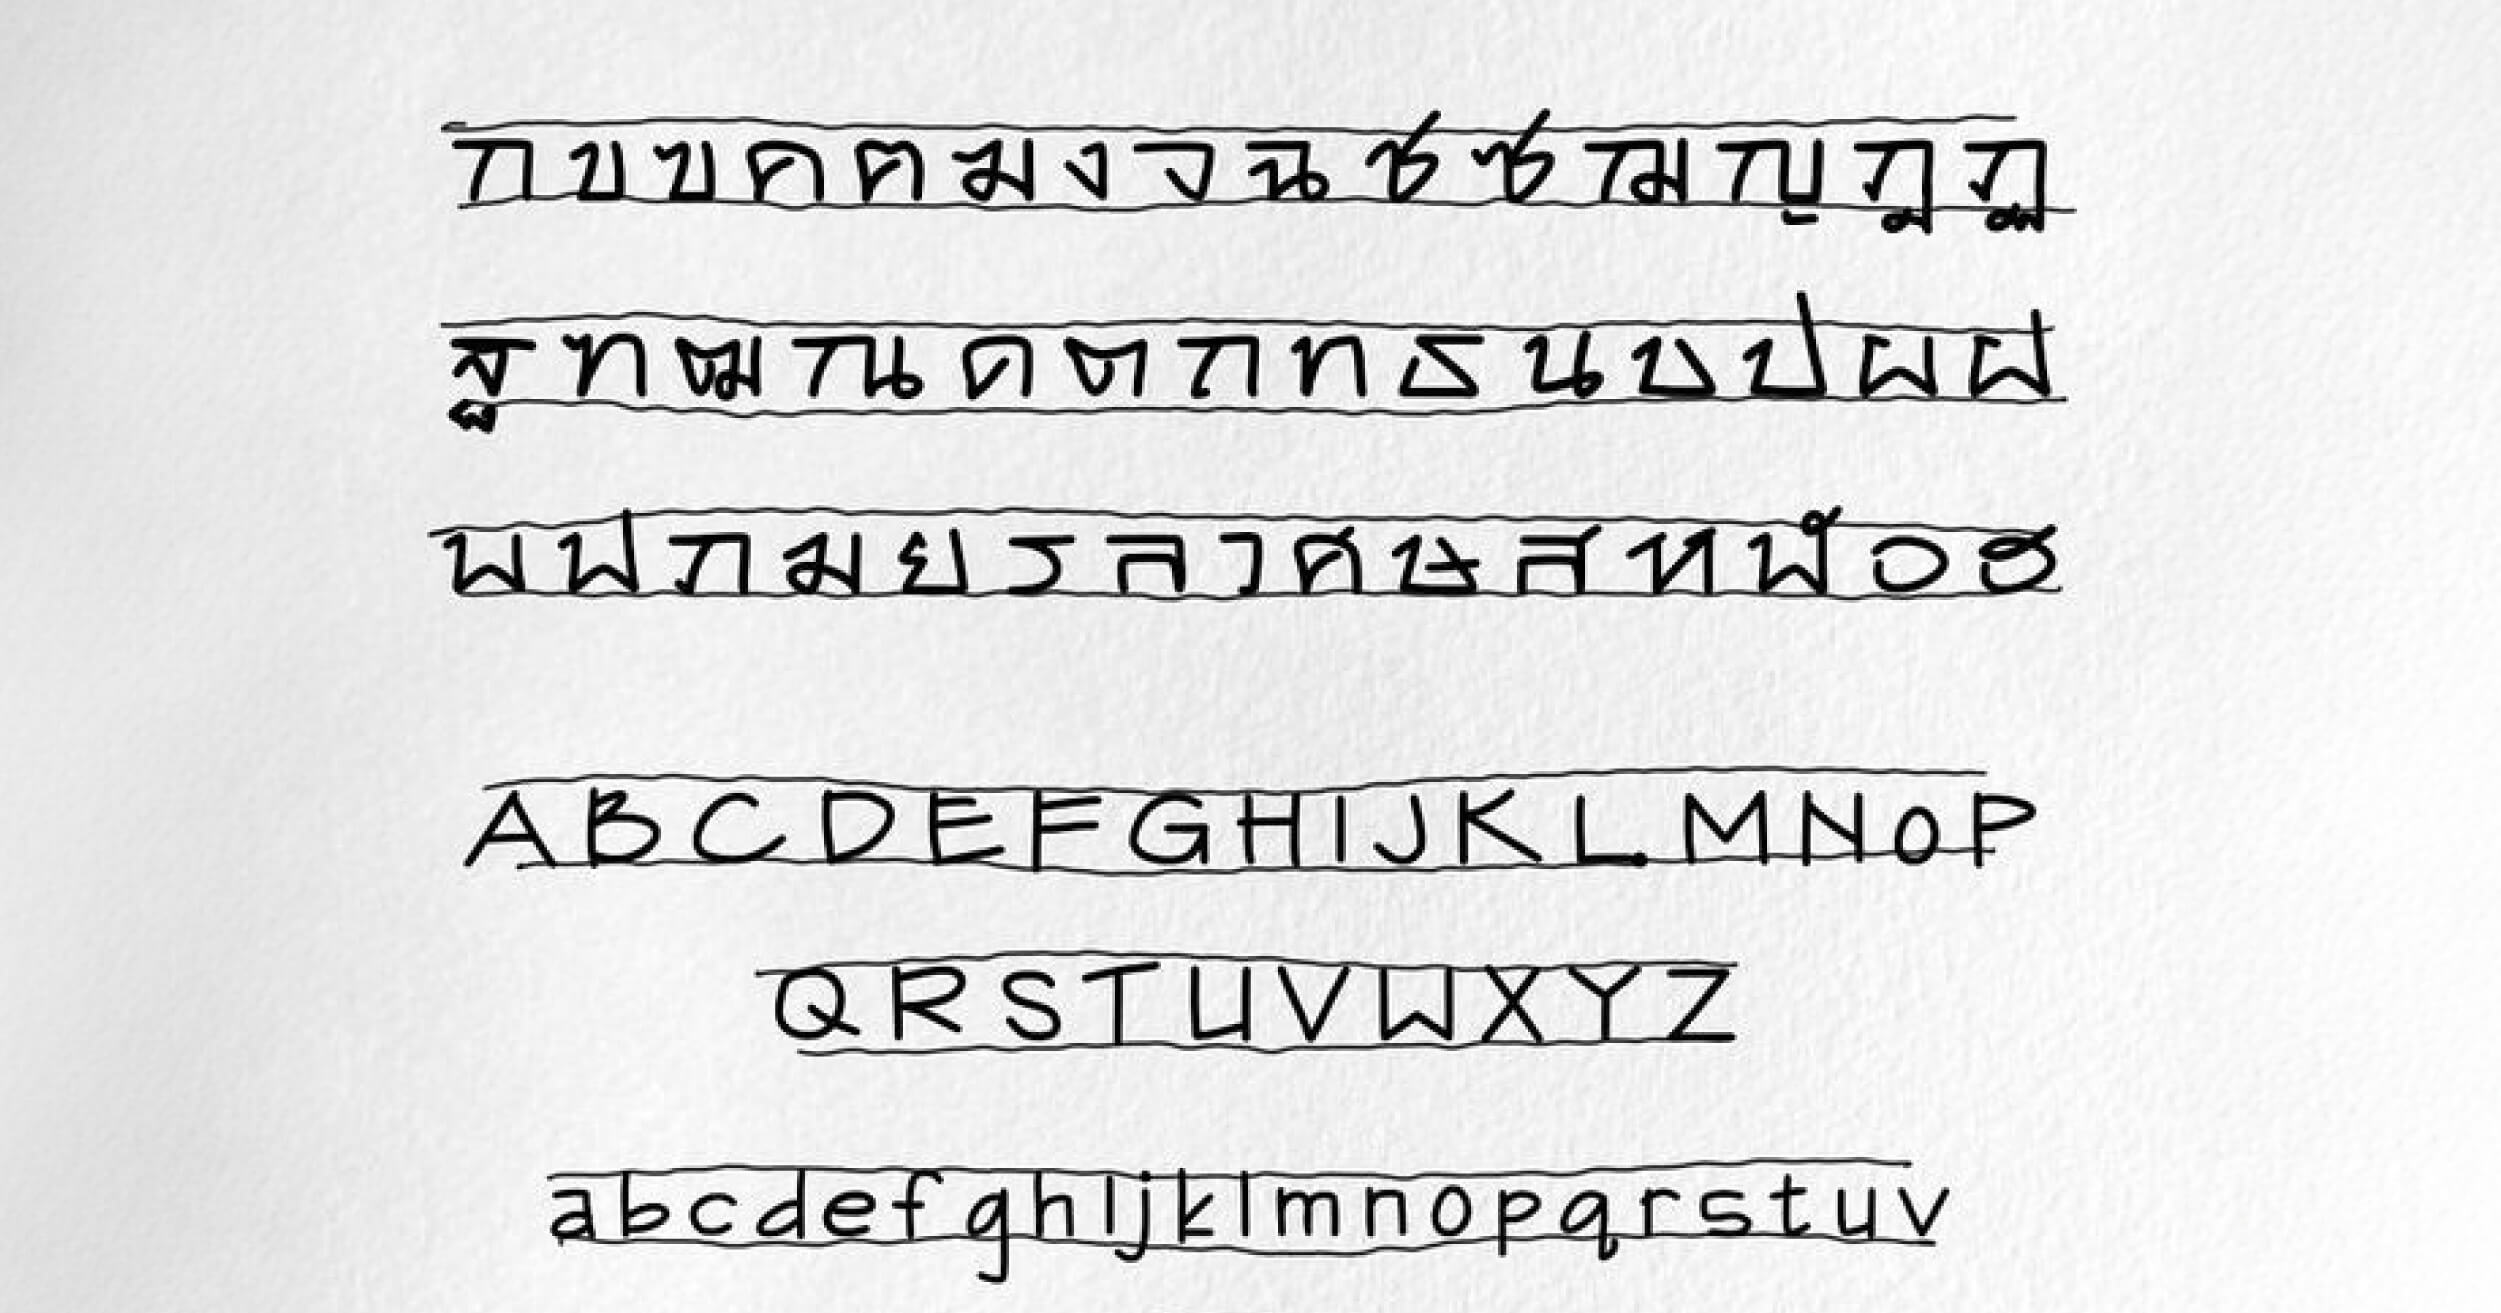 กขฃคฅฆงจฉชซฌญฎฏ
ฐฑฒณดตถทธนบปผฝ
พฟภมยรลวศษสหฬอฮ
ABCDEFGHIJKLMNOP
QRSTUVWXYZ
abcdefghijklmnopqrstuv